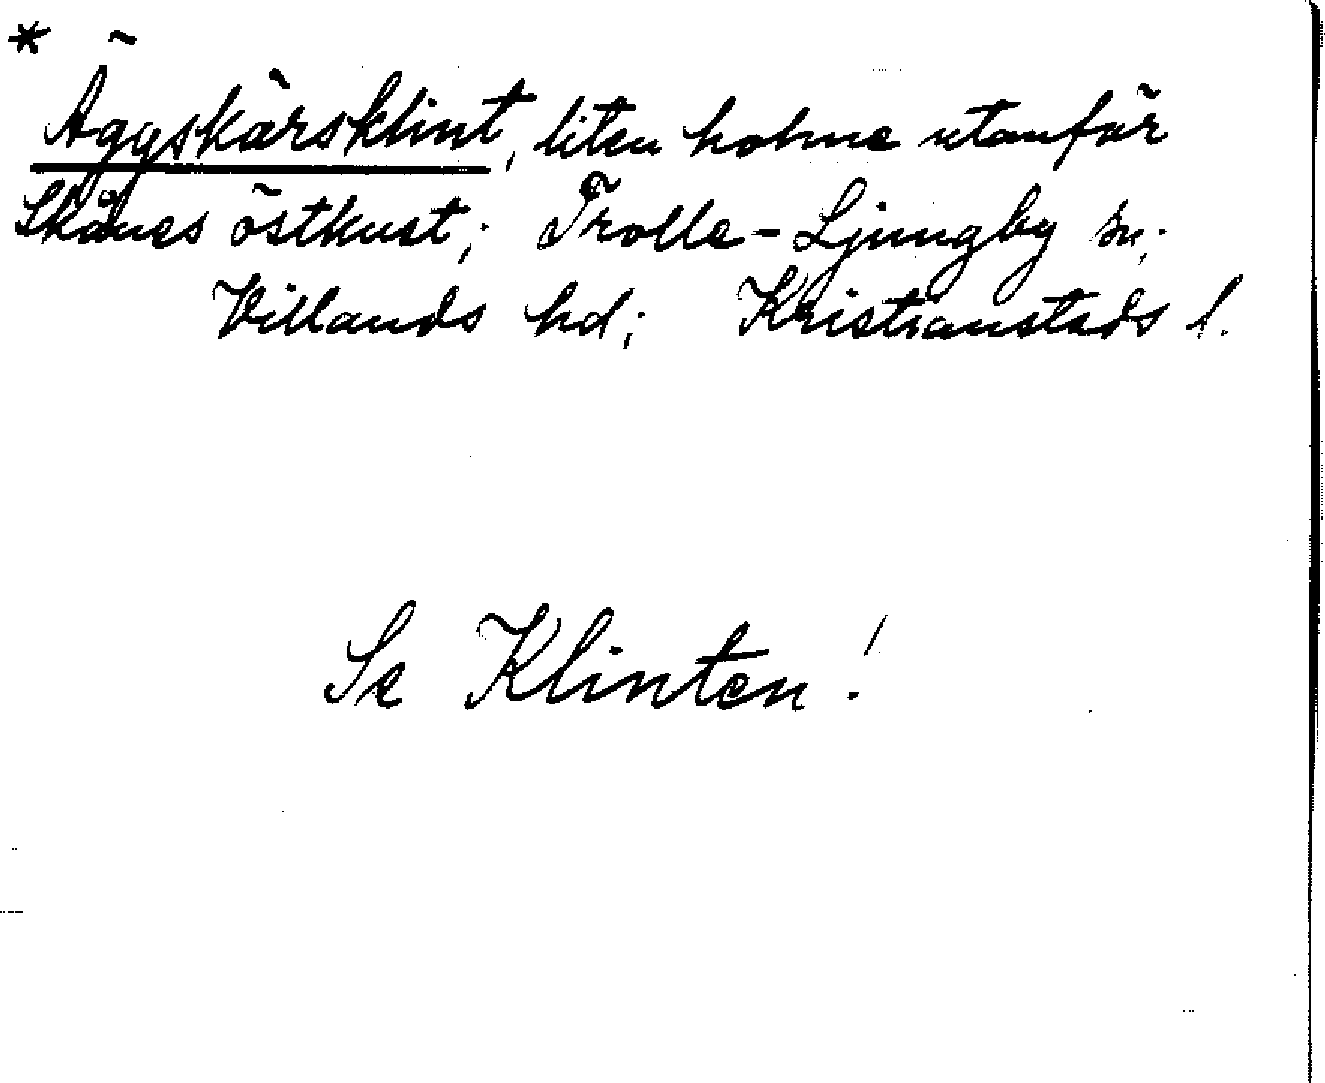 * Äggskärsklint, liten holme utanför
Skånes östkust; Trolle-Ljungby sn;
Villands hd; Kristianstads l.
Se Klinten!